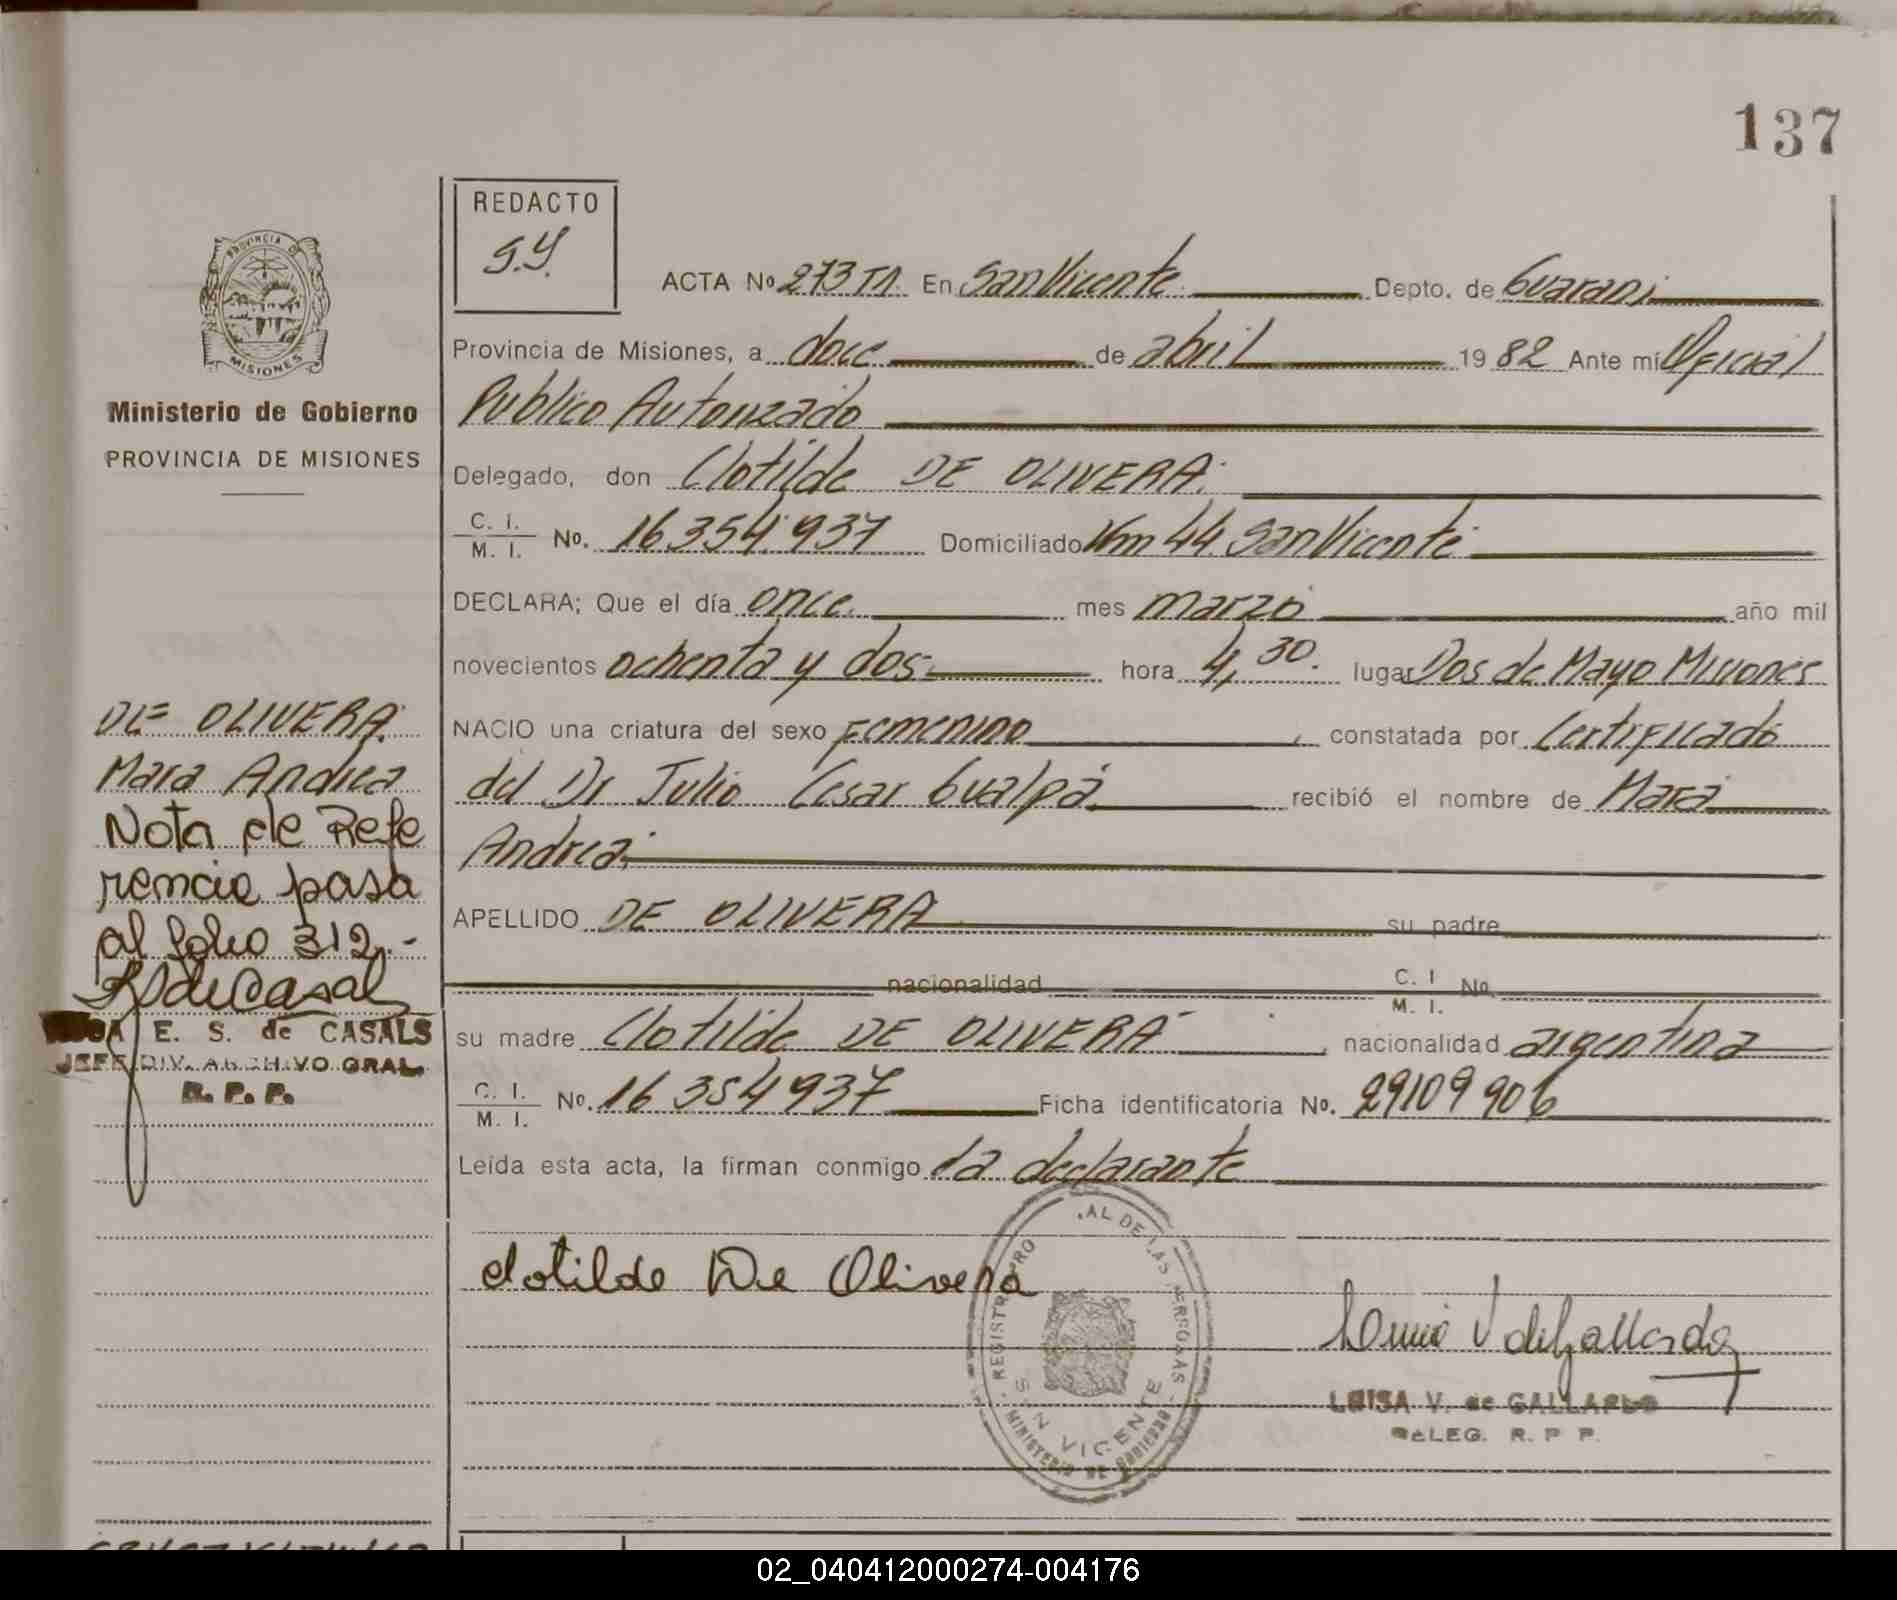 137
REDACTO
S.Y.
PROVINCIA DE
MISIONES
Ministerio de Gobierno
PROVINCIA DE MISIONES
ACTA No 273 TA. En San Vicente Depto. de Guarani
Provincia de Misiones, a doce de abril 1982 Ante mí Oficial
Publico Autorizado
Delegado, don Clotilde DE OLIVERA
C. I. / M. I. No. 16354937 Domiciliado Km 44 San Vicente
DECLARA; Que el día once mes marzo año mil
novecientos ochenta y dos hora 4,30. lugar Dos de Mayo Misiones
NACIO una criatura del sexo Femenino, constatada por Certificado
del Dr Julio Cesar Gualpa recibió el nombre de Mara
Andrea
APELLIDO DE OLIVERA su padre
nacionalidad C. I / M. I. No
su madre Clotilde DE OLIVERA, nacionalidad argentina
C. I. / M. I. No. 16354937 Ficha identificatoria No. 29109906
Leída esta acta, la firman conmigo la declarante
DE OLIVERA
Mara Andrea
Nota de Refe
rencia pasa
al folio 312.-
E. S. de CASALS
JEFE DIV. ARCHIVO GRAL.
R. P. P.
Clotilde De Olivera
AL DE LAS PERSONAS
SAN VICENTE
MINISTERIO DE GOBIERNO
Luisa V de Gallardo
LUISA V. de GALLARDO
DELEG. R. P P.
02_040412000274-004176